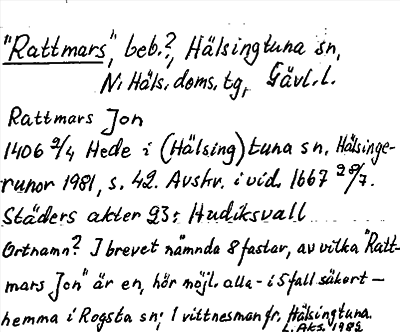 "Rattmars", beb.?, Hälsingtuna sn,
N. Häls. doms. tg, Gävl. l.
Rattmars Jon
1406 2/4 Hede i (Hälsing)tuna sn. Hälsinge-
runor 1981, s. 42. Avskr. i vid. 1667 28/7.
Städers akter 23: Hudiksvall
Ortnamn? I brevet nämnda 8 fastar, av vilka "Ratt-
mars Jon" är en, hör möjl. alla - i 5 fall säkert -
hemma i Rogsta sn; 1 vittnesman fr. Hälsingtuna.
L. Aks. 1982